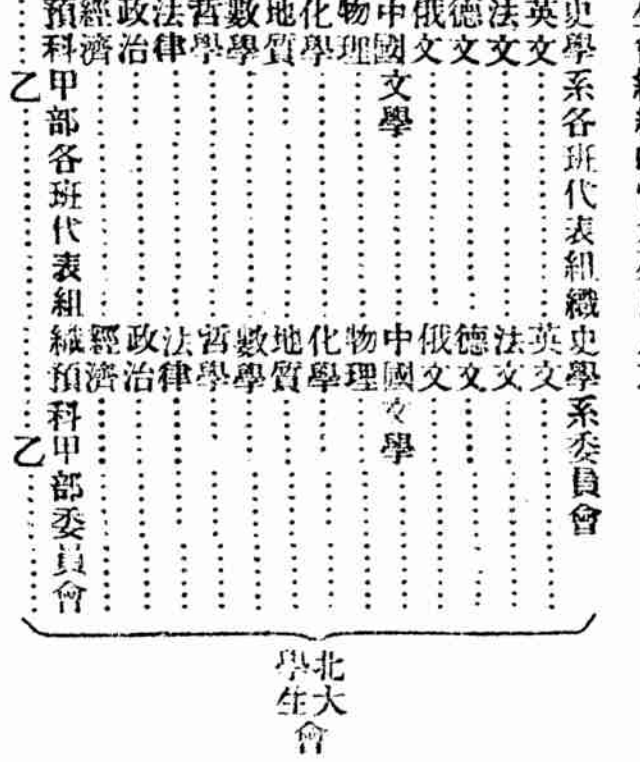 史學系各班代表組織史學系委員會
英文……………………英文……………………
法文……………………法文……………………
德文……………………德文……………………
俄文……………………俄文……………………
中國文學………………中國文學………………
物理……………………物理……………………
化學……………………化學……………………
地質……………………地質……………………
數學……………………數學……………………
哲學……………………哲學……………………
法律……………………法律……………………
政治……………………政治……………………
經濟……………………經濟……………………
預科甲部各班代表組織預科甲部委員會
乙……………………乙……………………
北大
學生
會